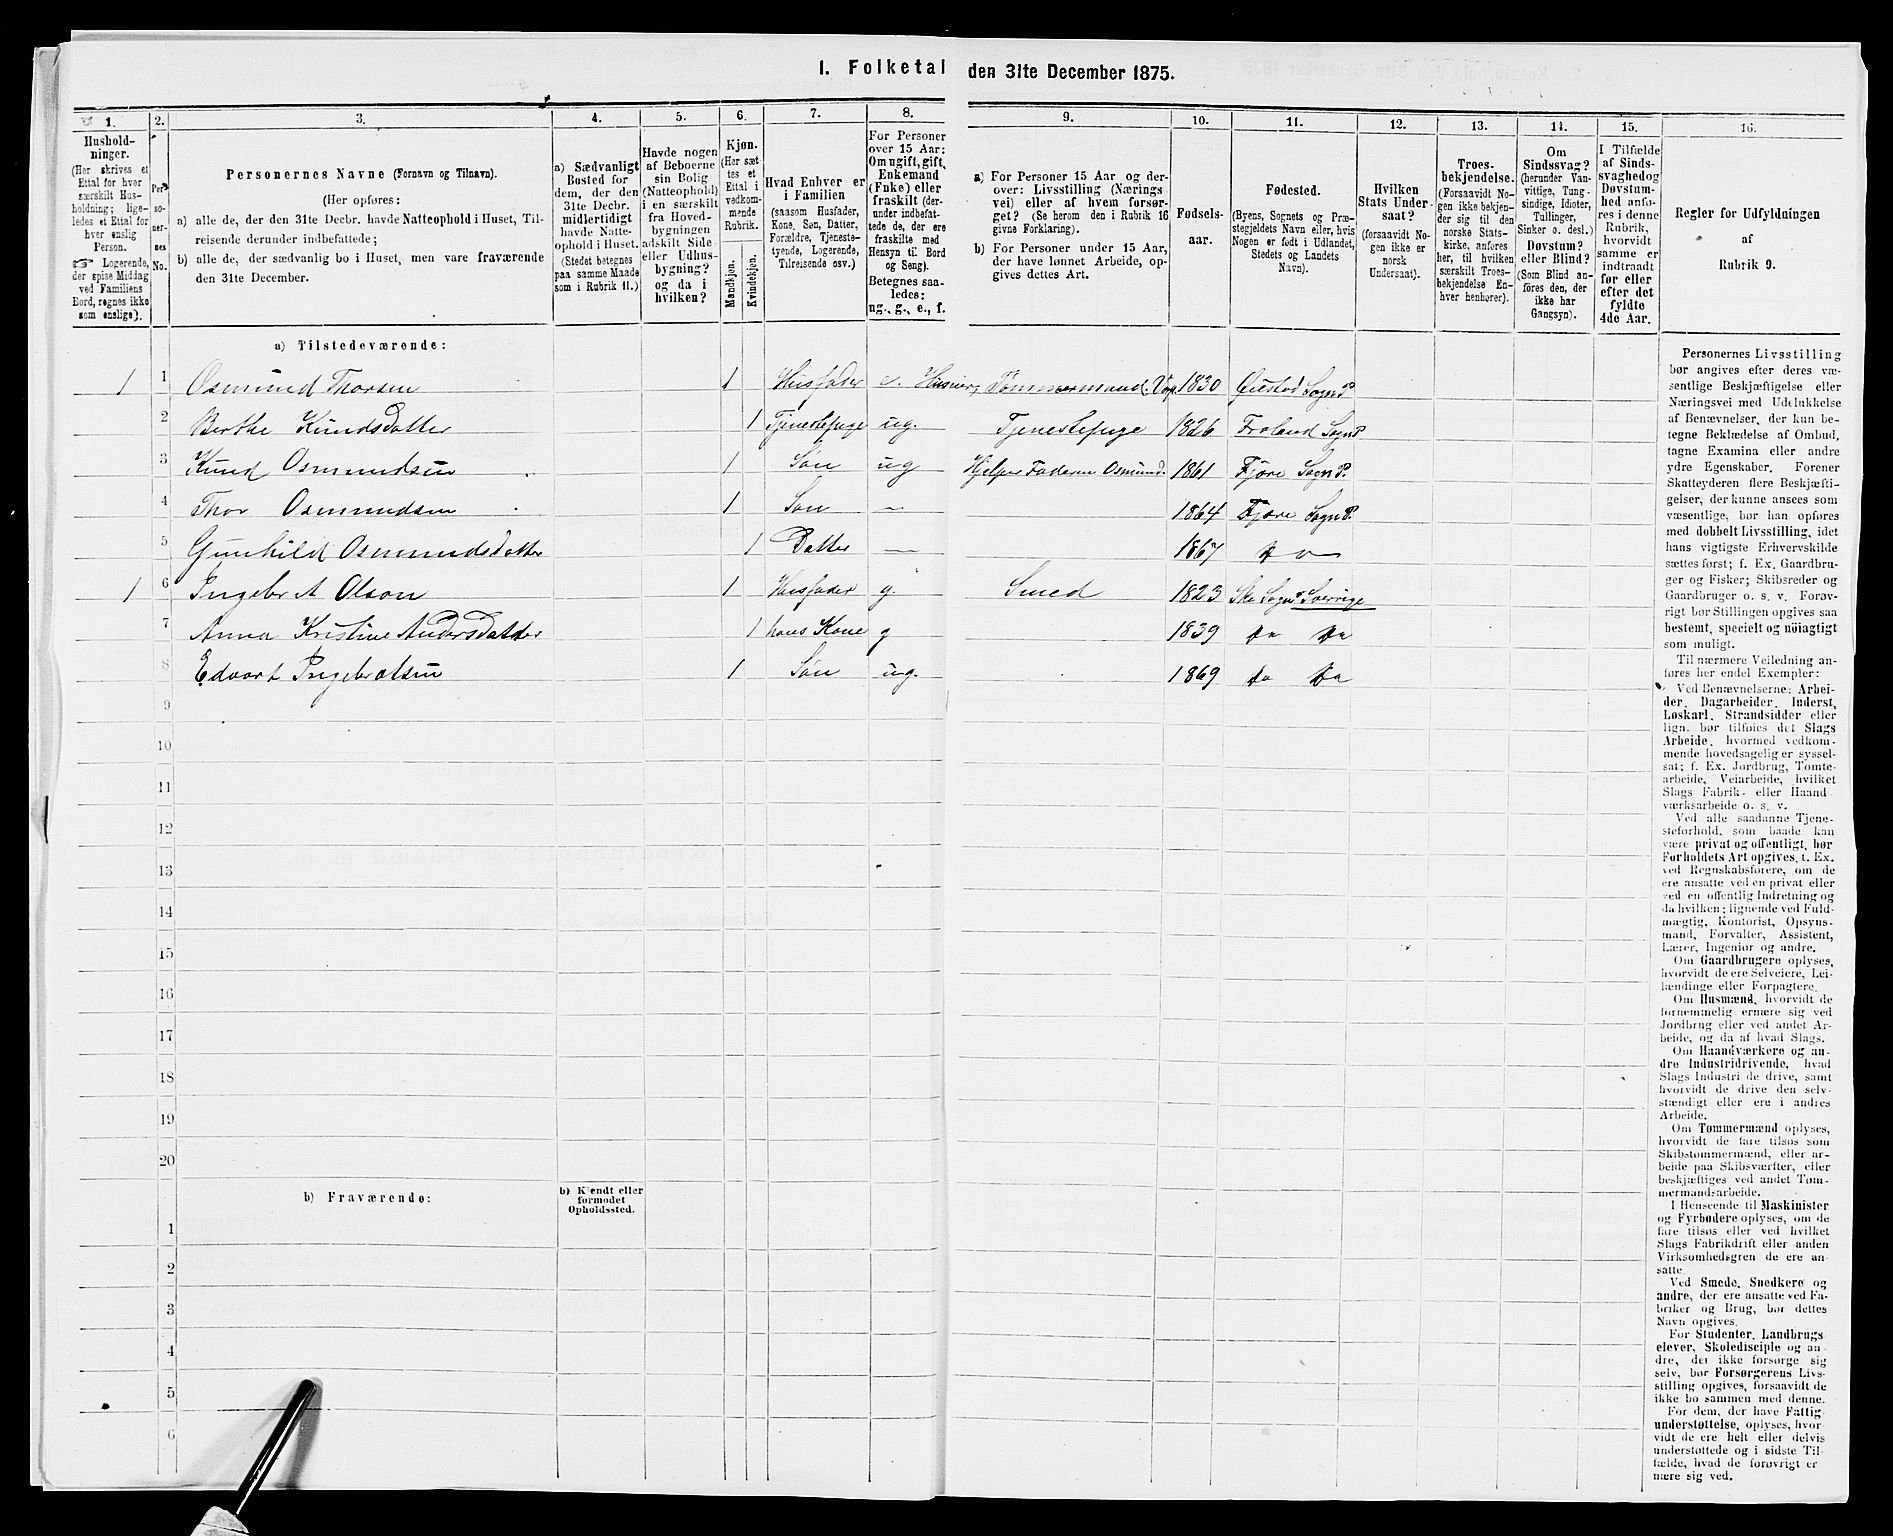 1. Folketal den 31te December 1875.
1.
2.
3.
4.
5.
6.
7.
8.
9.
10.
11.
12.
13.
14.
15.
16.
Husholdninger.
(Her skrives et
Ettal for hver
særskilt Husholdning; ligeledes et Ettal for
hver enslig
Person.
☞ Logerende,
der spise Middag
ved Familiens
Bord, regnes ikke
som enslige).
Personernes No.
Personernes Navne (Fornavn og Tilnavn).
(Her opføres:
a) alle de, der den 31te Decbr. havde Natteophold i Huset, Tilreisende derunder indbefattede;
b) alle de, der sædvanlig bo i Huset, men vare fraværende
den 31te December.
a) Sædvanligt
Bosted for
dem, der den
31te Decbr.
midlertidigt
havde Natteophold i Huset.
(Stedet betegnes
paa samme Maade
som i Rubrik 11.)
Havde nogen
af Beboerne
sin Bolig
(Natteophold)
i en særskilt
fra Hovedbygningen
adskilt Side
eller Udhusbygning?
og da i
hvilken?
Kjøn.
(Her sættes et
Ettal i
vedkommende
Rubrik.
Mandkjøn.
Kvindekjøn.
Hvad Enhver er
i Familien
(saasom Husfader,
Kone, Søn, Datter,
Forældre, Tjenestetyende, Logerende,
Tilreisende osv.)
For Personer
over 15 Aar:
Om ugift, gift,
Enkemand
(Enke) eller
fraskilt (derunder indbefattede de, der ere
fraskilte med
Hensyn til Bord
og Seng).
Betegnes saaledes:
ug., g., e., f.
a) For Personer 15 Aar og derover: Livsstilling (Næringsvei) eller af hvem forsørget? (Se herom den i Rubrik 16
givne Forklaring).
b) For Personer under 15 Aar,
der have lønnet Arbeide, opgives dettes Art.
Fødselsaar.
Fødested.
(Byens, Sognets og Præstegjeldets Navn eller, hvis
Nogen er født i Udlandet,
Stedets og Landets
Navn).
Hvilken
Stats Undersaat?
(forsaavidt Nogen ikke er
norsk
Undersaat).
Troesbekjendelse.
(Forsaavidt Nogen ikke bekjender sig til den
norske Statskirke, anføres
her, til hvilken
særskilt Troesbekjendelse Enhver henhører).
Om
Sindssvag?
(herunder Vanvittige, Tungsindige, Idioter,
Tullinger,
Sinker o. desl.)
Døvstum?
eller Blind?
(Som Blind anføres den, der
ikke har
Gangsyn).
I Tilfælde
af Sindssvaghed og
Døvstumhed anføres i denne
Rubrik,
hvorvidt
samme er
indtraadt
før eller
efter det
fyldte
4de Aar.
Regler for Udfyldningen
af
Rubrik 9.
a) Tilstedeværende:
1 1 Osmund Thorsen 1 Husfader e. Husmand, Tømmermand 1830 Øiestad Sogn P
2 Berthe Knudsdatter 1 Tjenestepige ug. Tjenestepige 1826 Froland Sogn P.
3 Knud Osmundsen 1 Søn ug Hjelper Faderen Osmund. 1861 Fjære Sogn P.
4 Thor Osmundsen 1 Søn — 1864 Fjære Sogn P.
5 Gunhild Osmundsdatter 1 Datter — 1867 do —
1 6 Ingebret Olson 1 Husfader g. Smed 1823 Ske Sogn Sverrige
7 Anna Kristine Andersdatter 1 hans Kone g 1839 Do Do
8 Edvart Ingebretsen 1 Søn ug. 1869 Do Do
9
10
11
12
13
14
15
16
17
18
19
20
b) Fraværende:
b) Kjendt eller
formodet
Opholdssted.
1
2
3
4
5
6
Personernes Livsstilling
bør angives efter deres væsentlige Beskjæftigelse eller
Næringsvei med Udelukkelse
af Benævnelser, der kun betegne Beklædelse af Ombud,
tagne Examina eller andre
ydre Egenskaber. Forener
Skatteyderen flere Beskjæftigelser, der kunne ansees som
væsentlige, bør han opføres
med dobbelt Livsstilling, idet
hans vigtigste Erhvervskilde
sættes først; f. Ex. Gaardbruger og Fisker; Skibsreder og
Gaardbruger o. s. v. Forøvrigt bør Stillingen opgives saa
bestemt, specielt og nøiagtigt
som muligt.
Til nærmere Veiledning anføres her endel Exempler:
Ved Benævnelserne: Arbeider, Dagarbeider, Inderst,
Løskarl, Strandsidder eller
lign. bør tilføies det Slags
Arbeide, hvormed vedkommende hovedsagelig er sysselsat; f. Ex. Jordbrug, Tomtearbeide, Veiarbeide, hvilket
Slags Fabrik- eller Haandværksarbeide o. s. v.
Ved alle saadanne Tjenesteforhold, som baade kan
være privat og offentligt, bør
Forholdets Art opgives, t. Ex.
ved Regnskabsførere, om de
ere ansatte ved en privat eller
ved en offentlig Indretning og
da hvilken; lignende ved Fuldmægtig, Kontorist, Opsynsmand, Forvalter, Assistent,
Lærer, Ingeniør og andre.
Om Gaardbrugere oplyses,
hvorvidt de ere Selveiere, Leilændinge eller Forpagtere.
Om Husmænd, hvorvidt de
fornemmelig ernære sig ved
Jordbrug eller ved andet Arbeide, og da af hvad Slags.
Om Haandværkere og andre Industridrivende, hvad
Slags Industri de drive, samt
hvorvidt de drive den selvstændigt eller ere i andres
Arbeide.
Om Tømmermænd oplyses,
hvorvidt de fare tilsøs som
Skibstømmermænd, eller arbeide paa Skibsværfter, eller
beskjæftiges ved andet Tømmermandsarbeide.
I Henseende til Maskinister
og Fyrbødere oplyses, om de
fare tilsøs eller ved hvilket
Slags Fabrikdrift eller anden
Virksomhedsgren de ere ansatte.
Ved Smede, Snedkere og
andre, der ere ansatte ved Fabriker og Brug, bør dettes
Navn opgives.
For Studenter, Landbrugselever, Skoledisciple og andre, der ikke forsørge sig
selv, bør Forsørgerens Livsstilling opgives, forsaavidt de
ikke bo sammen med denne.
For dem, der have Fattigunderstøttelse, oplyses, hvorvidt de ere helt eller delvis
understøttede og i sidste Tilfælde, hvad de forøvrigt ernære sig ved.